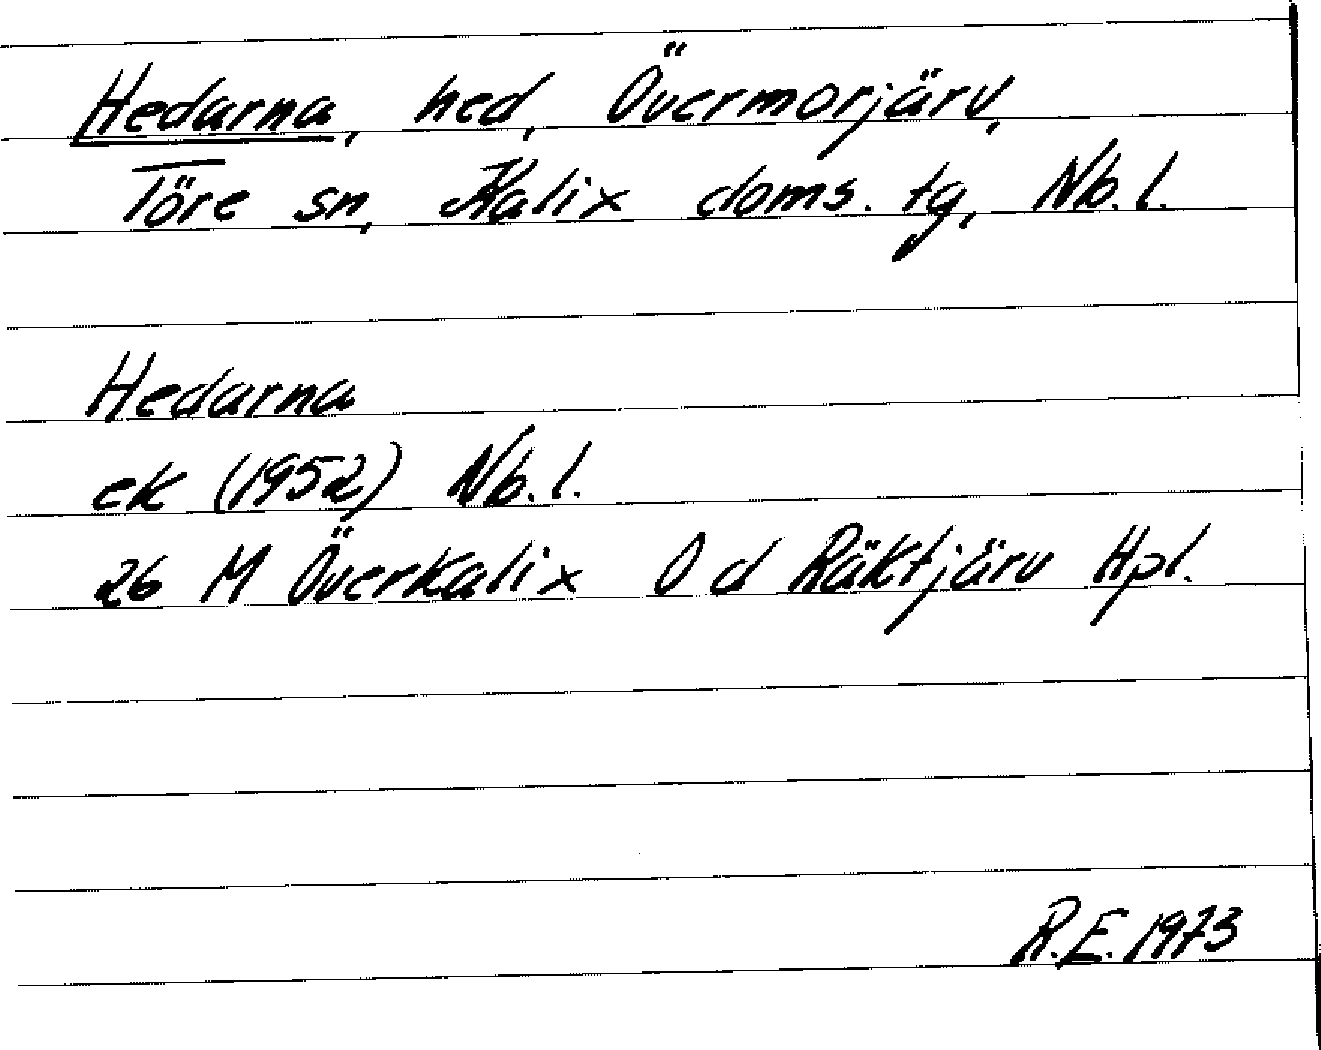 Hedarna, hed, Övermorjärv,
Töre sn, Kalix doms. tg, Nb. l.
Hedarna
ek (1952) Nb. l.
26 M Överkalix O d Räktjärv Hpl.
R.E. 1973